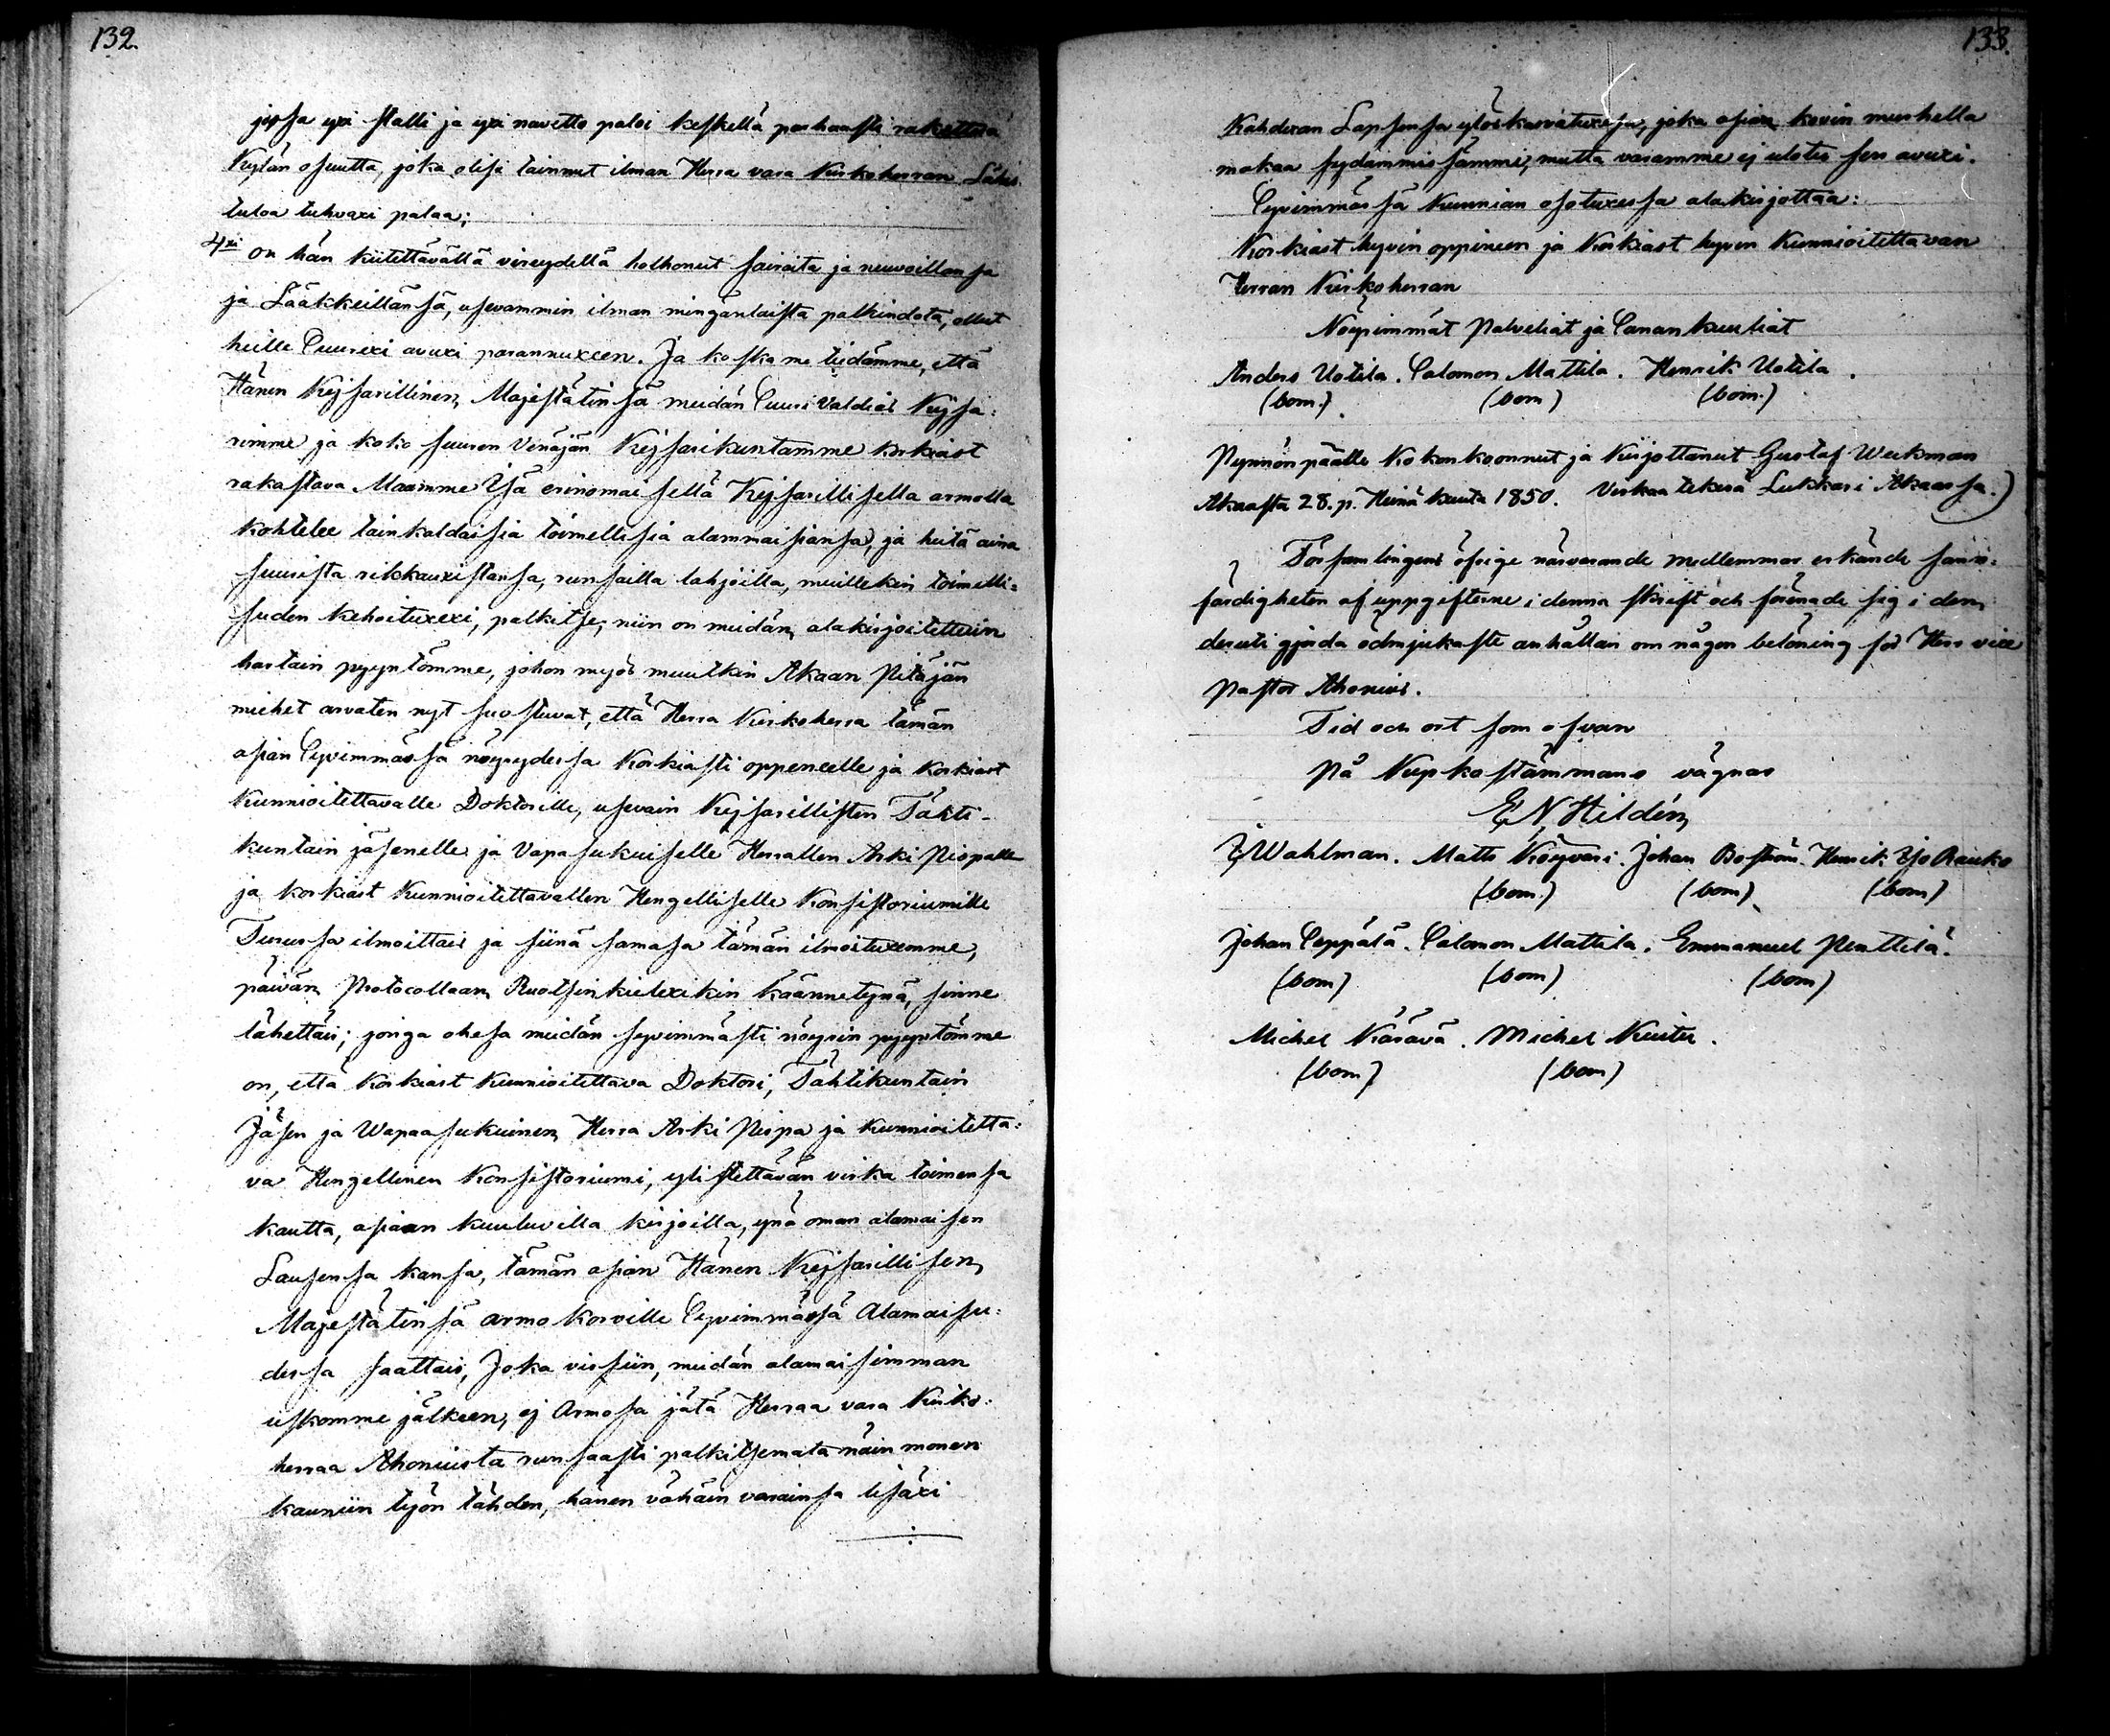 132.
jossa yxi stalli ja yxi navetto paloi keskellä parhaasti rakettua
Kylän osuutta, joka olisi tainnut ilman Herra vara Kirkoherran Läsnä
tuloa tuhvaxi palaa;
4xi on hän kiitettävällä vireydellä holhonut sairaita ja neuvoillansa
ja Lääkkeillänsä, usevammin ilman mingänlaista palkindota, ollut
heille Suurexi avuxi parannuxeen. Ja koska me tiedämme, että
Hänen Kejsarillinen Majestätinsä meidän Suuri Valdias Kejsa:
rimme ja koko suuren Venäjän Kejsarikuntamme korkiast
rakastava Maamme Isä erinomaisellä Kejsarillisella armolla
kohtelee tainkaldaisia toimellisia alammaisiansa, ja heitä aina
suurista rikkauxistansa, runsailla lahjoilla, muillekin toimelli:
suden kehoituxexi, palkitse, niin on meidän alakirjoitettuin
hartain pyyntömme, johon myös muutkin Akaan Pitäjän
miehet arvaten nyt suostuvat, että Herra Kirkoherra tämän
asian Syvimmässä nöyrydessä Korkiasti oppeneelle ja Korkiast
Kunnioitettavalle Doktorille, usevain Kejsarillisten Tähti-
kuntain jäsenelle ja Vapasukuiselle Herrallen Arki Pispalle
ja korkiast Kunnioitettavallen Hengelliselle Konsistoriumille
Turussa ilmoittais ja siinä samasa tämän ilmoituxemme,
päivän Protocollaan Ruotsinkielexikin käännetynä, sinne
lähettäis; jonga ohesa meidän syvimmästi nöyrin pyyntömme
on, että korkiast Kunnioitettava Doktori, Tähtikuntain
Jäsen ja Wapaasukuinen Herra Arki Pispa ja kunnioitetta:
va Hengellinen Konsistoriumi, ylistettävän virka toimensa
kautta, asiaan kuuluvilla kirjoilla, ynä oman alamaisen
Lausensa kansa, tämän asian Hänen Kejsarillisen
Majestätinsä armo korville Syvimmässä Alamaisu:
dessa saattais, Joka vissiin, meidän alamaisimman
uskomme jälkeen, ej Armosa jätä Herraa vara Kirko:
herraa Ahoniusta runsaasti palkitsemata näin monen
kauniin työn tähden, hänen vähäin varainsa lisäxi
133.
Kahdexan Lapsensa ylöskasvatuxesa, joka asian kovin murhella
makaa sydämmissämme, mutta varamme ej ulotu sen avuxi.
Syvimmässä Kunnian osotuxessa alakirjottaa:
Korkiast hyvin oppineen ja Korkiast hyvin Kunnioitettavan
Herran Kirkoherran
Nöyrimmät Palveliat ja Sanankuuliat
Anders Uotila. Salomon Mattila. Henrik Uotila.
(bom.) (bom) (bom.)
Pyynnön päälle Kokonkoonnut ja Kirjottanut Gustaf Weekman
Akaasta 28. p. Heinä kuuta 1850. Virkaa tekevä Lukkari Akaassa.)
Församlingens öfrige närvarande medlemmar erkände sann:
färdigheten af uppgifterne i denna skrift och förenade sig i den
deruti gjorda ödmjukaste anhållan om någon belöning för Herr vice
Pastor Ahonius.
Tid och ort som ofvan
På Kyrkostämmans vägnar
E N Hildén
J Wahlman. Matts Köyväri. Johan Boström. Henrik Yjo Rauko
(bom.) (bom) (bom)
Johan Seppälä. Salomon Mattila. Emmanuel Penttilä.
(bom) (bom) (bom)
Michel Kärävä. Michel Kuitu.
(bom) (bom)